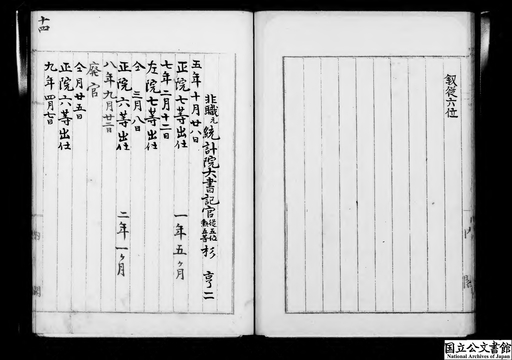 叙従六位
非職元統計院大書記官従五位勲五等杉亨二
五年十月廿八日
正院七等出仕 一年五ヶ月
七年二月十二日
左院七等出仕
仝三月八日
正院六等出仕 二年一ヶ月
八年九月廿二日
廃官
仝月廿五日
正院六等出仕
九年四月七日
十四
国立公文書館
National Archives of Japan